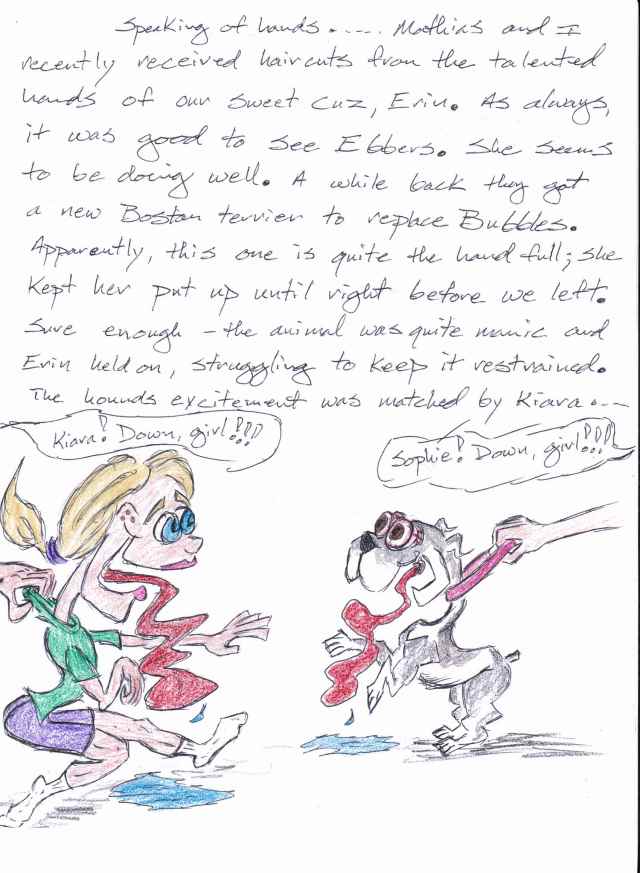 Speaking of hands...... Mathias and I
recently received haircuts from the talented
hands of our sweet cuz, Erin. As always,
it was good to see Ebbers. She seems
to be doing well. A while back they got
a new Boston terrier to replace Bubbles.
Apparently, this one is quite the hand full; she
kept her put up until right before we left.
Sure enough - the animal was quite manic and
Erin held on, struggling to keep it restrained.
The hounds excitement was matched by Kiara....
Kiara! Down, girl!!!!
Sophie! Down, girl!!!!